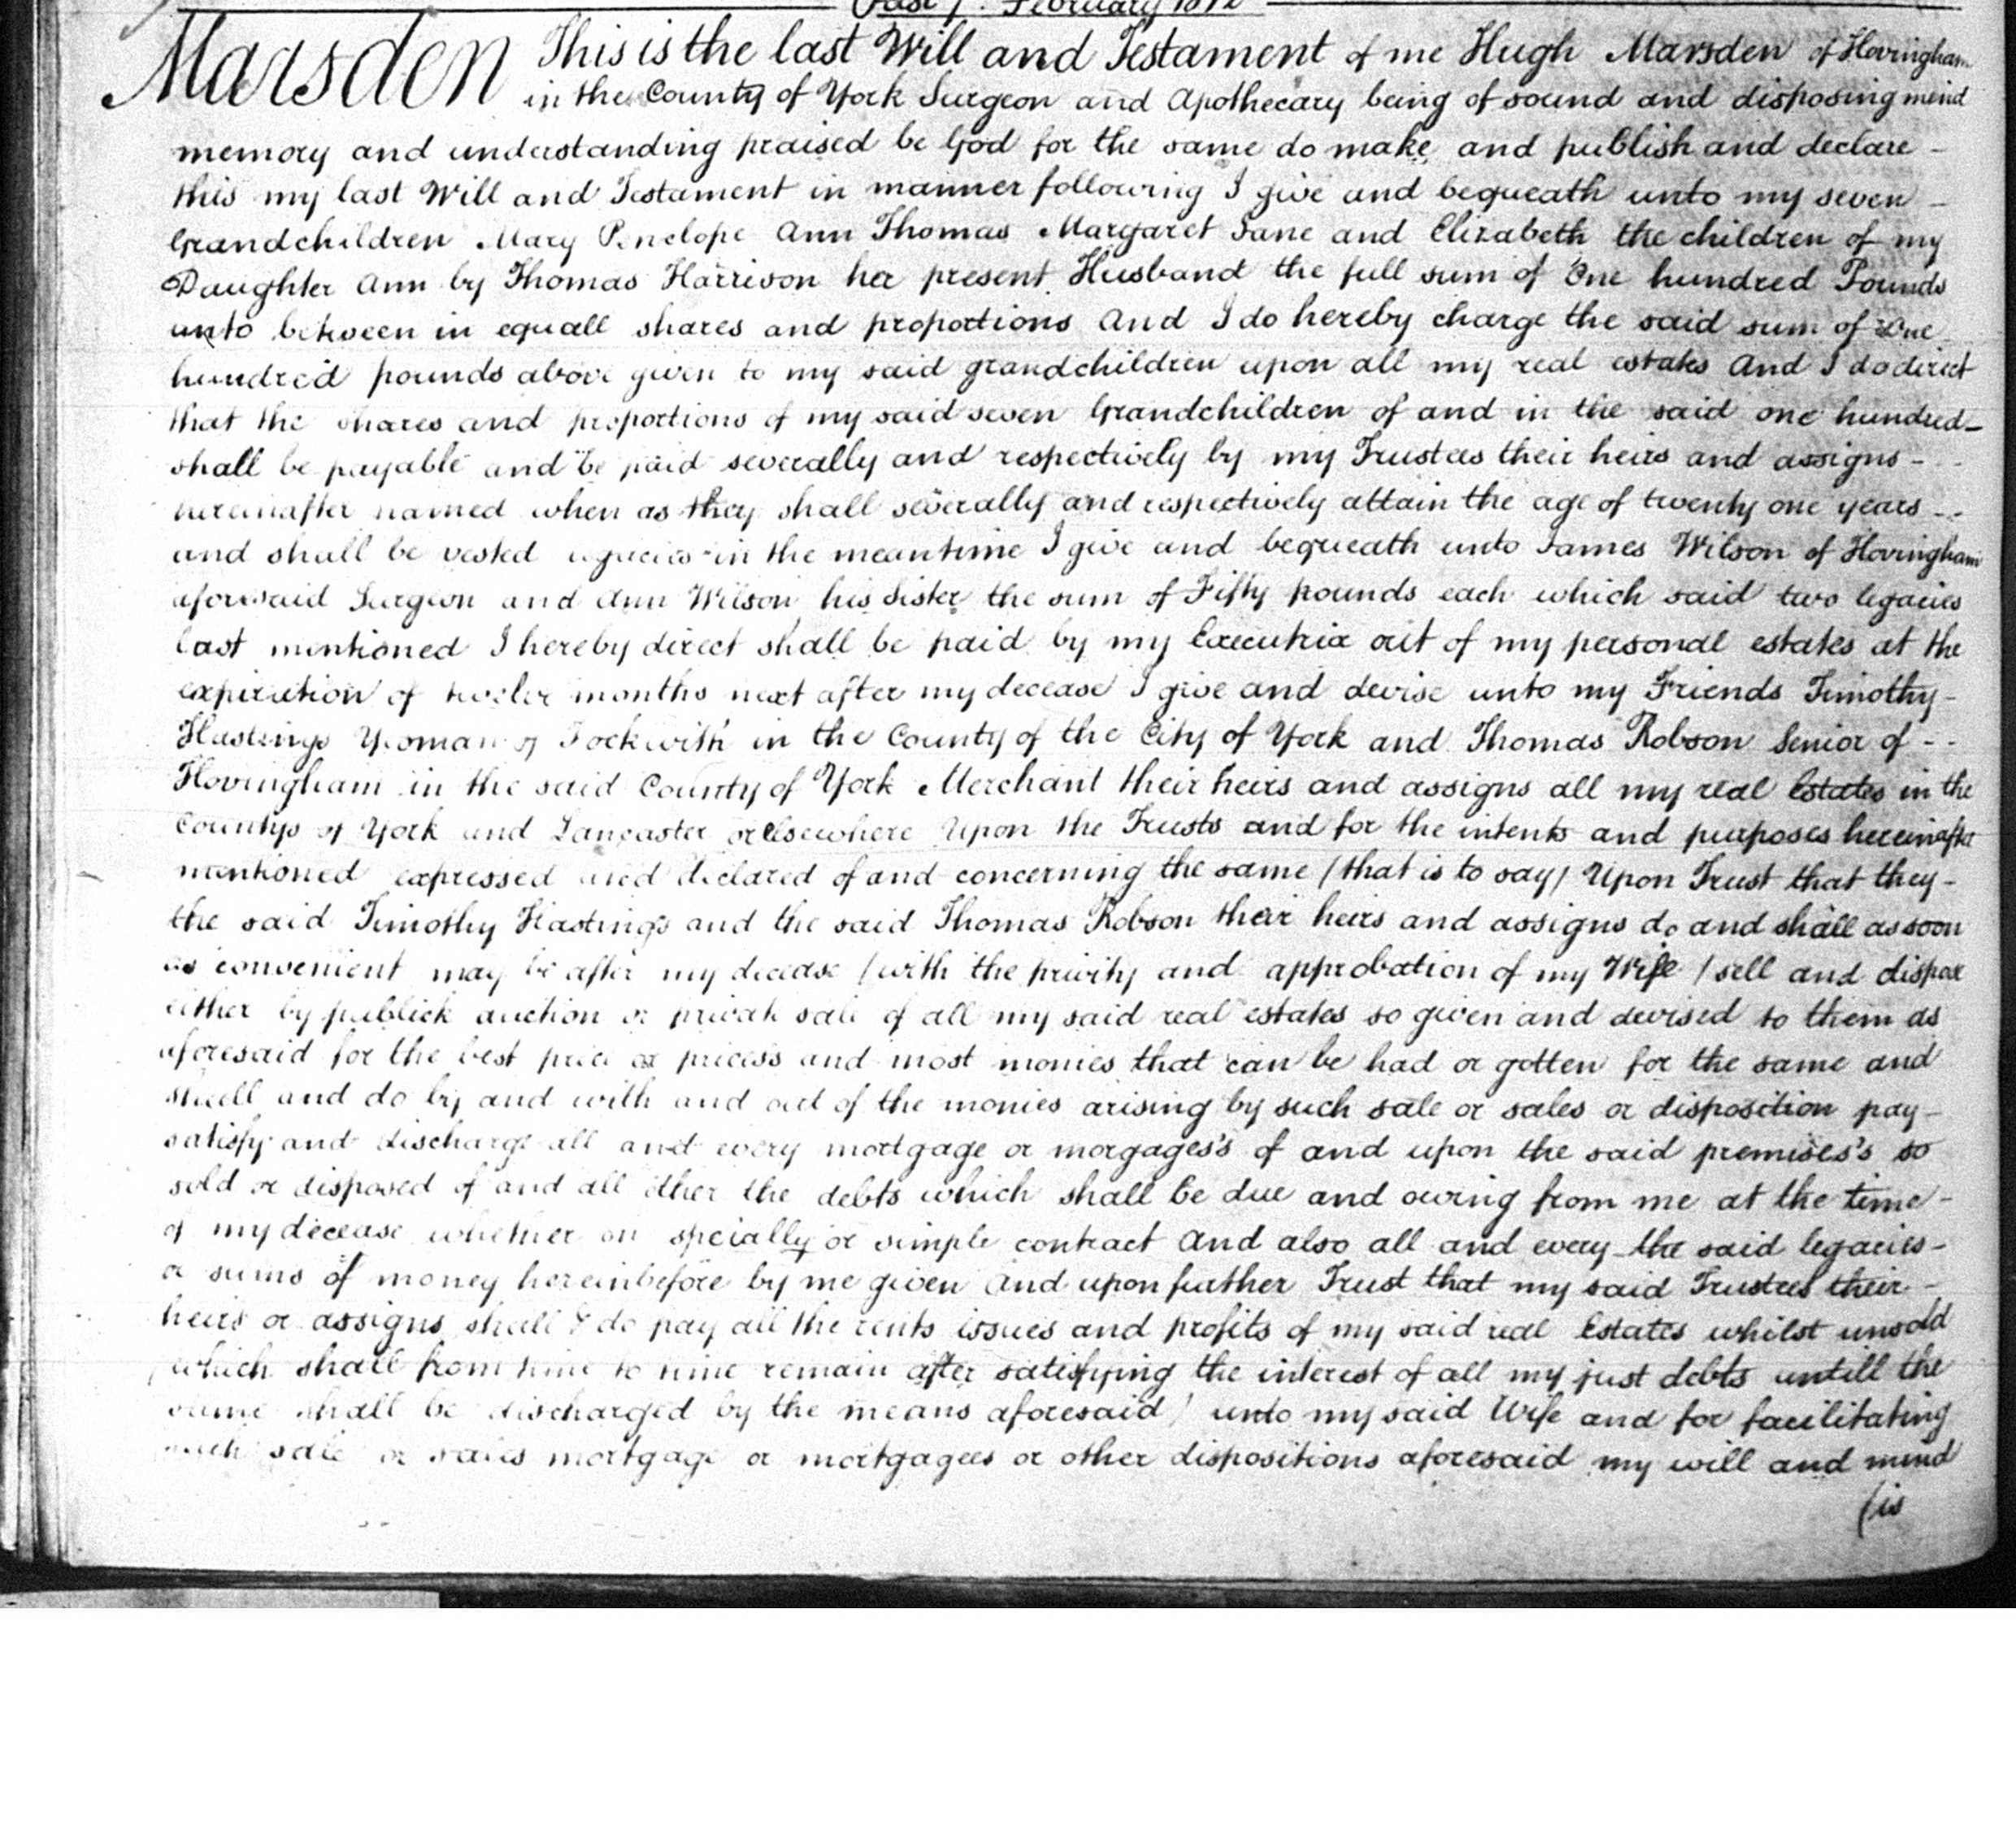 February
Marsden This is the last Will and Testament of me Hugh Marsden of Hovingham
in the County of York Surgeon and Apothecary being of sound and disposing mind
memory and understanding praised be God for the same do make and publish and declare -
this my last Will and Testament in manner following I give and bequeath unto my seven -
Grandchildren Mary Penelope Ann Thomas Margaret Jane and Elizabeth the children of my
Daughter Ann by Thomas Harrison her present Husband the full sum of One hundred Pounds
unto between in equall shares and proportions And I do hereby charge the said sum of One
hundred pounds above given to my said grandchildren upon all my real estates And I do direct
that the shares and proportions of my said seven Grandchildren of and in the said one hundred -
shall be payable and be paid severally and respectively by my Trustees their heirs and assigns - - -
hereinafter named when as they shall severally and respectively attain the age of twenty one years - -
and shall be vested legacies in the meantime I give and bequeath unto James Wilson of Hovingham
aforesaid Surgeon and Ann Wilson his Sister the sum of Fifty pounds each which said two legacies
last mentioned I hereby direct shall be paid by my Executrix out of my personal estates at the
expiration of twelve months next after my decease I give and devise unto my Friends Timothy -
Hastings Yeoman of Tockwith in the County of the City of York and Thomas Robson Senior of - -
Hovingham in the said County of York Merchant their heirs and assigns all my real Estates in the
Countys of York and Lancaster or elsewhere Upon the Trusts and for the intents and purposes hereinafter
mentioned expressed and declared of and concerning the same /that is to say/ Upon Trust that they -
the said Timothy Hastings and the said Thomas Robson their heirs and assigns do and shall as soon
as convenient may be after my decease /with the privity and approbation of my Wife/ sell and dispose
either by publick auction or private sale of all my said real estates so given and devised to them as
aforesaid for the best price or prices's and most monies that can be had or gotten for the same and
shall and do by and with and out of the monies arising by such sale or sales or disposition pay -
satisfy and discharge all and every mortgage or morgages's of and upon the said premises's so
sold or disposed of and all other the debts which shall be due and owing from me at the time -
of my decease whether on specially or simple contract And also all and every the said legacies -
or sums of money hereinbefore by me given And upon further Trust that my said Trustees their -
heirs or assigns shall & do pay all the rents issues and profits of my said real Estates whilst unsold
/which shall from time to time remain after satisfying the interest of all my just debts untill the
same shall be discharged by the means aforesaid/ unto my said Wife and for facilitating
such sale or sales mortgage or mortgagees or other dispositions aforesaid my will and mind
(is